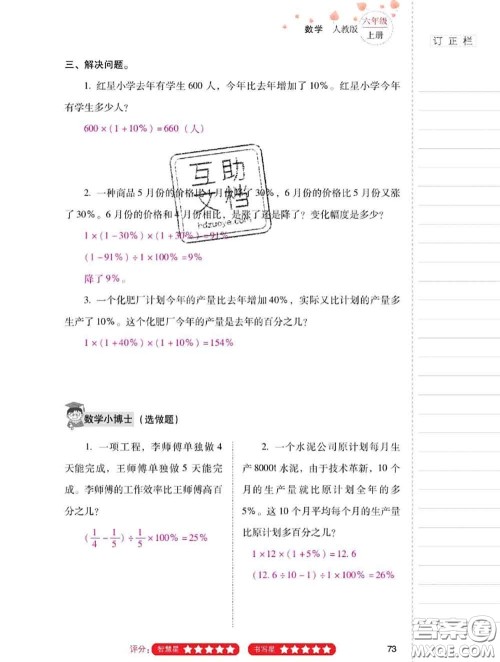 数学 人教版 六年级
上册
订正栏
三、解决问题。
1. 红星小学去年有学生 600 人，今年比去年增加了 10%。红星小学今年
有学生多少人？
600×(1+10%)=660（人）
2. 一种商品 5 月份的价格比 4 月份降了 30%，6 月份的价格比 5 月份又涨
了 30%。6 月份的价格和 4 月份相比，是涨了还是降了？变化幅度是多少？
1×(1-30%)×(1+30%)=91%
(1-91%)÷1×100%=9%
降了 9%。
3. 一个化肥厂计划今年的产量比去年增加 40%，实际又比计划的产量多
生产了 10%。这个化肥厂今年的产量是去年的百分之几？
1×(1+40%)×(1+10%)=154%
互助
文档
hdzuoye.com
数学小博士（选做题）
1. 一项工程，李师傅单独做 4
天能完成，王师傅单独做 5 天能完成。
李师傅的工作效率比王师傅高百
分之几？
(1/4-1/5)÷1/5×100%=25%
2. 一个水泥公司原计划每月生
产 8000t 水泥，由于技术革新，10 个
月的生产量就比原计划全年的多
5%。这 10 个月平均每个月的生产量
比原计划多百分之几？
1×12×(1+5%)=12.6
(12.6÷10-1)÷1×100%=26%
评分：智慧星 ★★★★★ 书写星 ★★★★★
73
作业帮
MXQE.COM